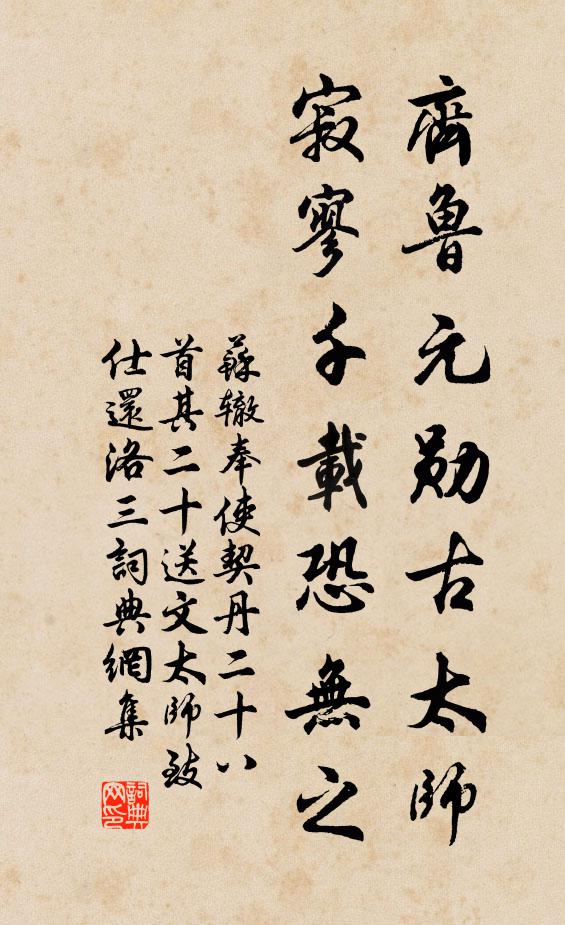 齊魯元勛古太師
寂寥千載恐無之
蘇轍奉使契丹二十八
首其二十送文太師致
仕還洛三詞典網集
詞典
网印